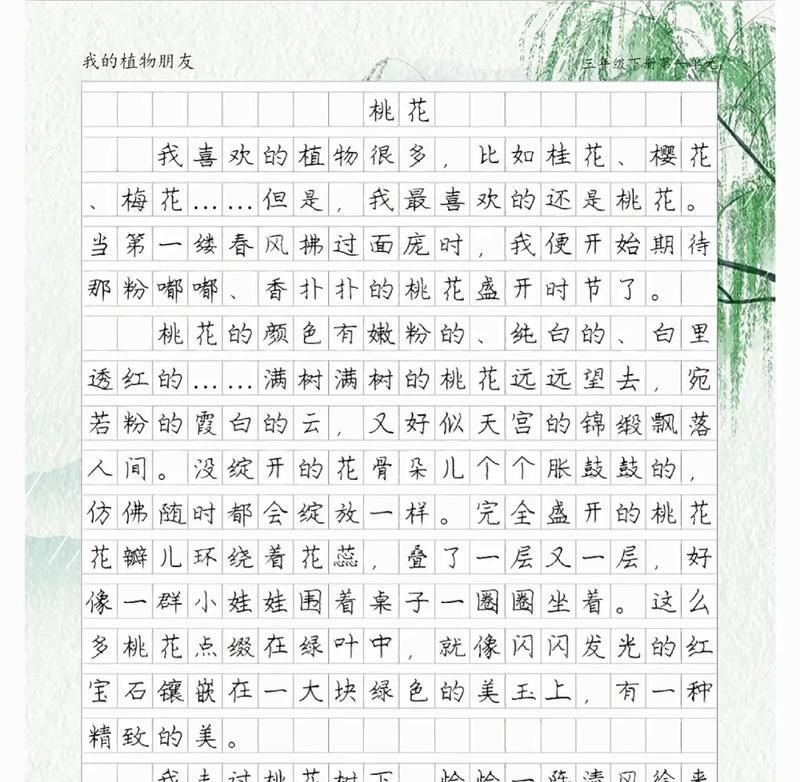 我的植物朋友
三年级下册第一单元
桃花
我喜欢的植物很多，比如桂花、樱花
、梅花……但是，我最喜欢的还是桃花。
当第一缕春风拂过面庞时，我便开始期待
那粉嘟嘟、香扑扑的桃花盛开时节了。
桃花的颜色有嫩粉的、纯白的、白里
透红的……满树满树的桃花远远望去，宛
若粉的霞白的云，又好似天宫的锦缎飘落
人间。没绽开的花骨朵儿个个胀鼓鼓的，
仿佛随时都会绽放一样。完全盛开的桃花
花瓣儿环绕着花蕊，叠了一层又一层，好
像一群小娃娃围着桌子一圈圈坐着。这么
多桃花点缀在绿叶中，就像闪闪发光的红
宝石镶嵌在一大块绿色的美玉上，有一种
精致的美。
我走过桃花树下，恰恰一阵清风徐来